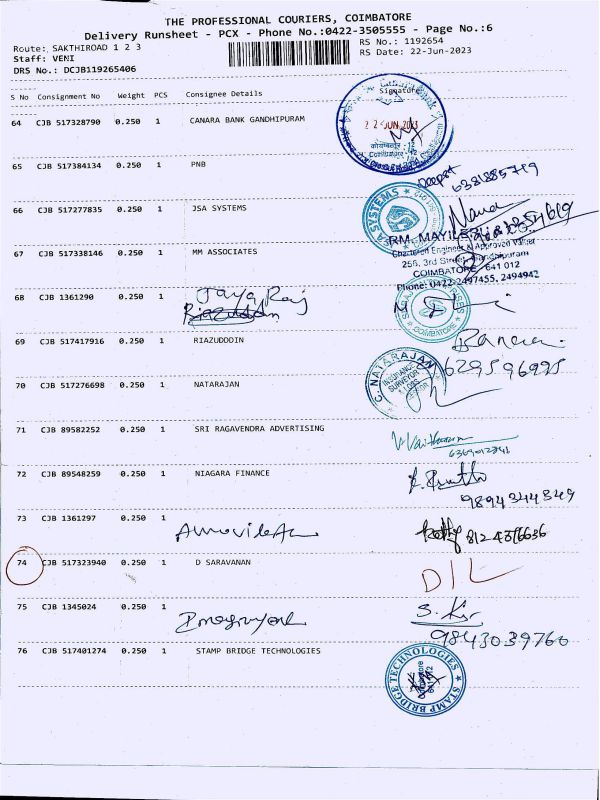 THE PROFESSIONAL COURIERS, COIMBATORE
Delivery Runsheet - PCX - Phone No.:0422-3505555 - Page No.:6
Route: SAKTHIROAD 1 2 3
RS No.: 1192654
Staff: VENI
RS Date: 22-Jun-2023
DRS No.: DCJB119265406
S No Consignment No Weight PCS Consignee Details Signature
64 CJB 517328790 0.250 1 CANARA BANK GANDHIPURAM
22 JUN 2023
कोयम्बत्तूर - 12
Coimbatore - 12
65 CJB 517384134 0.250 1 PNB
6381885719
66 CJB 517277835 0.250 1 JSA SYSTEMS
SYSTEMS
67 CJB 517338146 0.250 1 MM ASSOCIATES
RM. MAYIL
Chartered Engineer & Approved Valuer
256, 3rd Street, Gandhipuram
COIMBATORE - 641 012
Phone: 0422-2497455, 2494942
68 CJB 1361290 0.250 1 Jaya Raj
COIMBATORE
69 CJB 517417916 0.250 1 RIAZUDDOIN
629596995
70 CJB 517276698 0.250 1 NATARAJAN
C. NATARAJAN
INSURANCE
SURVEYOR
& LOSS
71 CJB 89582252 0.250 1 SRI RAGAVENDRA ADVERTISING
72 CJB 89548259 0.250 1 NIAGARA FINANCE
9894344349
73 CJB 1361297 0.250 1
74 CJB 517323940 0.250 1 D SARAVANAN
D/L
75 CJB 1345024 0.250 1
9843039760
76 CJB 517401274 0.250 1 STAMP BRIDGE TECHNOLOGIES
STAMP BRIDGE TECHNOLOGIES